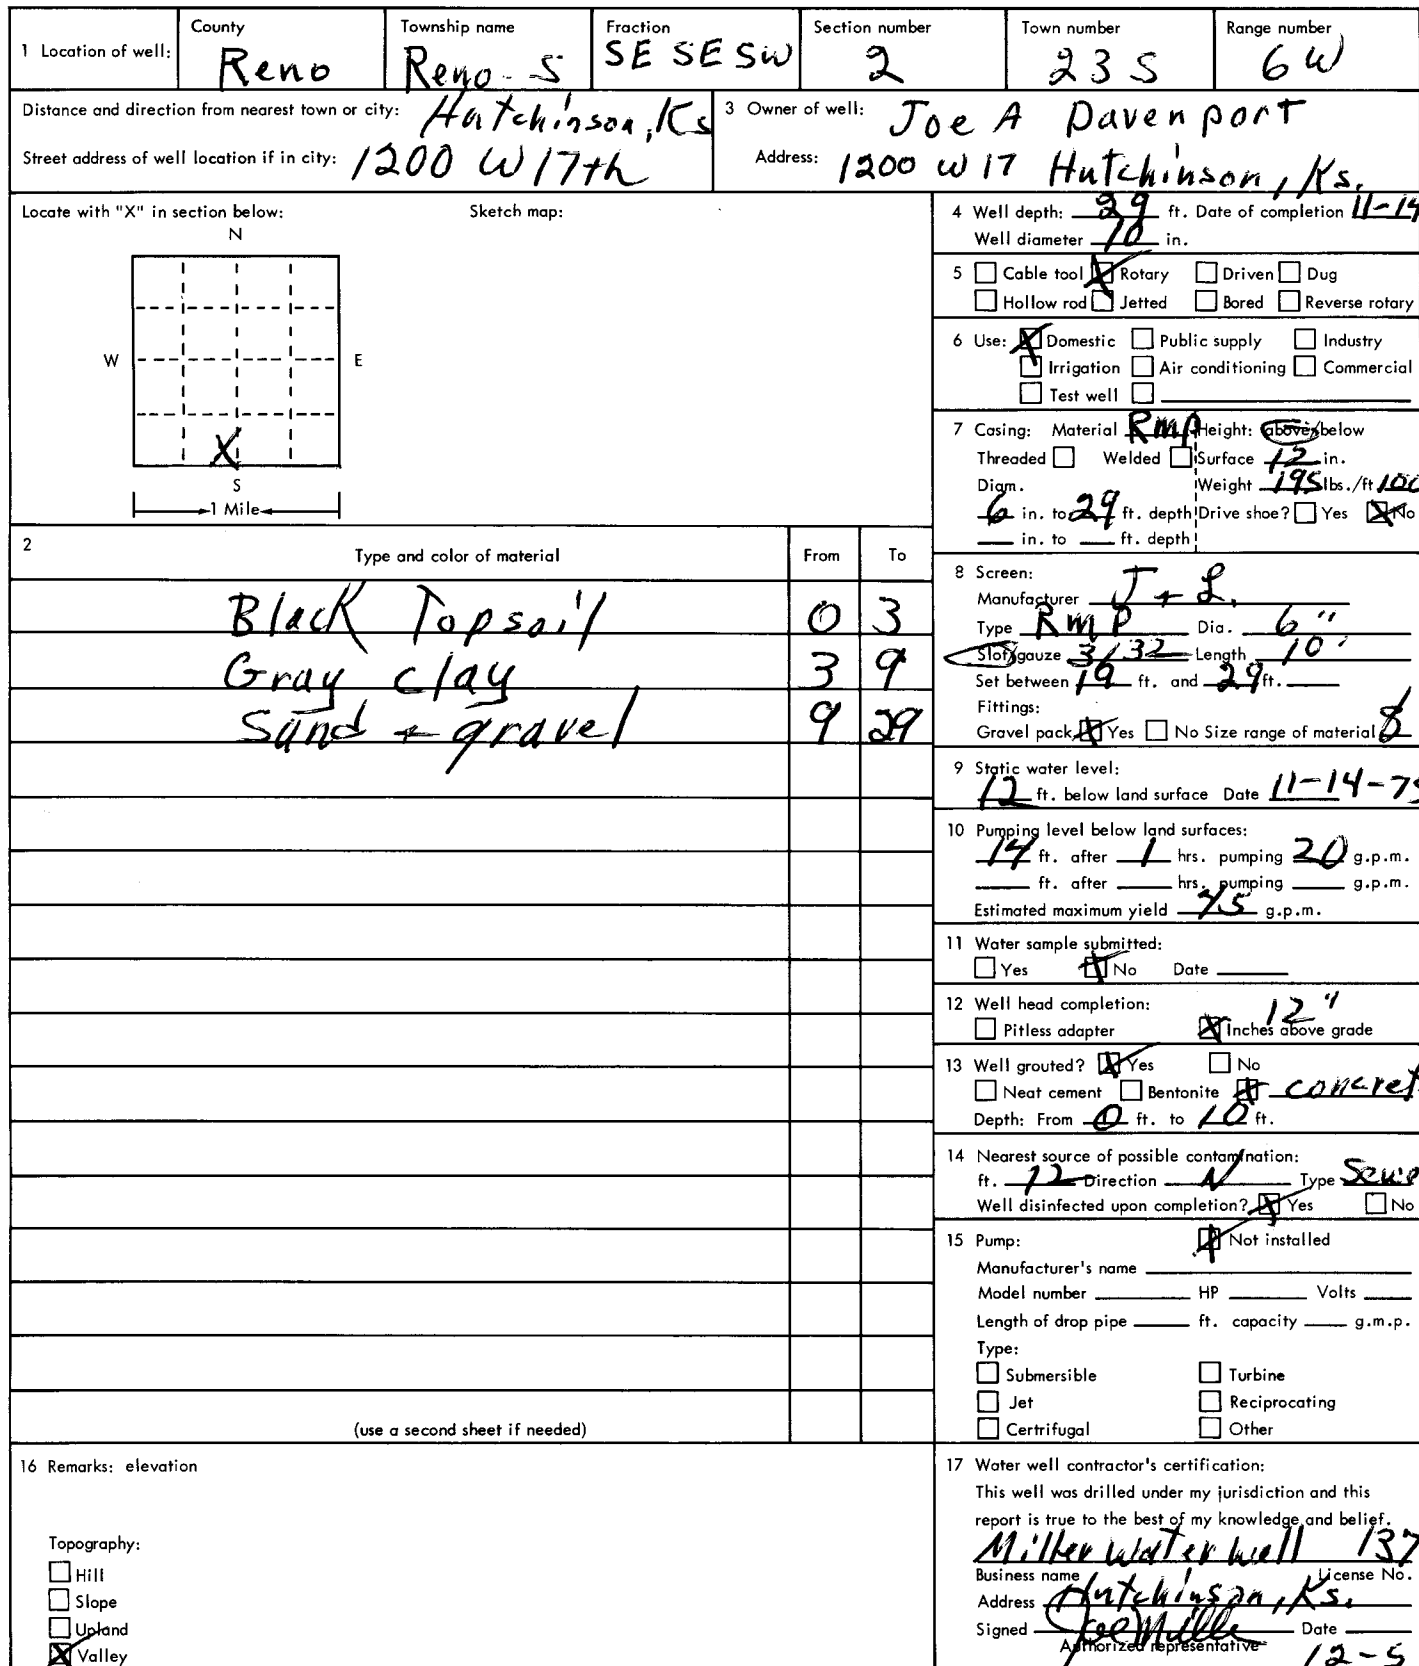 1 Location of well: County Reno Township name Reno - S Fraction SE SE SW Section number 2 Town number 23 S Range number 6W
Distance and direction from nearest town or city: Hutchinson, Ks
Street address of well location if in city: 1200 W 17th
3 Owner of well: Joe A Davenport
Address: 1200 W 17 Hutchinson, Ks.
Locate with "X" in section below: Sketch map:
N
W E
X
S
1 Mile
2 Type and color of material From To
Black Topsoil 0 3
Gray clay 3 9
Sand + gravel 9 29
(use a second sheet if needed)
4 Well depth: 29 ft. Date of completion 11-14
Well diameter 10 in.
5 Cable tool X Rotary Driven Dug
Hollow rod Jetted Bored Reverse rotary
6 Use: X Domestic Public supply Industry
Irrigation Air conditioning Commercial
Test well
7 Casing: Material RMP Height: above/below
Threaded Welded Surface 12 in.
Diam. Weight 195 lbs./ft 100
6 in. to 29 ft. depth Drive shoe? Yes X No
in. to ft. depth
8 Screen:
Manufacturer J + L.
Type RMP Dia. 6"
Slot/gauze 3/32 Length 10'
Set between 19 ft. and 29 ft.
Fittings:
Gravel pack X Yes No Size range of material 8
9 Static water level:
12 ft. below land surface Date 11-14-75
10 Pumping level below land surfaces:
14 ft. after 1 hrs. pumping 20 g.p.m.
ft. after hrs. pumping g.p.m.
Estimated maximum yield 75 g.p.m.
11 Water sample submitted:
Yes X No Date
12 Well head completion: 12"
Pitless adapter X Inches above grade
13 Well grouted? X Yes No
Neat cement Bentonite X concret
Depth: From 0 ft. to 10 ft.
14 Nearest source of possible contamination:
ft. 12 Direction N Type Sewe
Well disinfected upon completion? X Yes No
15 Pump: X Not installed
Manufacturer's name
Model number HP Volts
Length of drop pipe ft. capacity g.m.p.
Type:
Submersible Turbine
Jet Reciprocating
Certrifugal Other
16 Remarks: elevation
Topography:
Hill
Slope
Upland
X Valley
17 Water well contractor's certification:
This well was drilled under my jurisdiction and this
report is true to the best of my knowledge and belief.
Miller Water Well 137
Business name License No.
Address Hutchinson, Ks.
Signed Joe Miller Date 12-5
Authorized representative